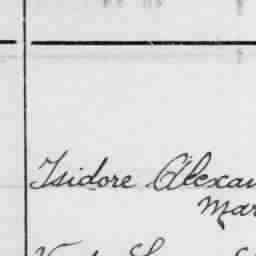 Isidore Alexan
Mar